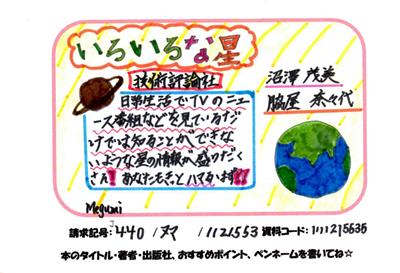 いろいろな星
技術評論社
日常生活でTVのニュ
ース番組などを見ているだ
けでは知ることができな
いような星の情報が盛りだく
さん! あなたもきっとハマるはず!!
沼澤 茂美
脇屋 奈々代
Megumi
請求記号: 440 /ヌマ/ 1121553 資料コード: 1111215635
本のタイトル・著者・出版社、おすすめポイント、ペンネームを書いてね☆